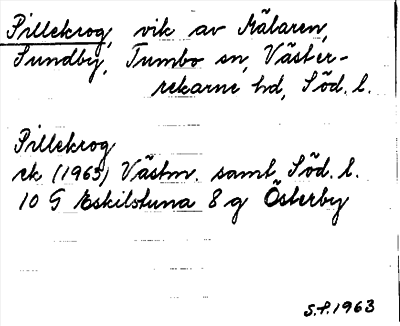 Pillekrog, vik av Mälaren,
Sundby, Tumbo sn, Väster-
rekarne hd, Söd. l.
Pillekrog
ek (1963) Västm. samt Söd. l.
10 G Eskilstuna 8 g Österby
S.F. 1963